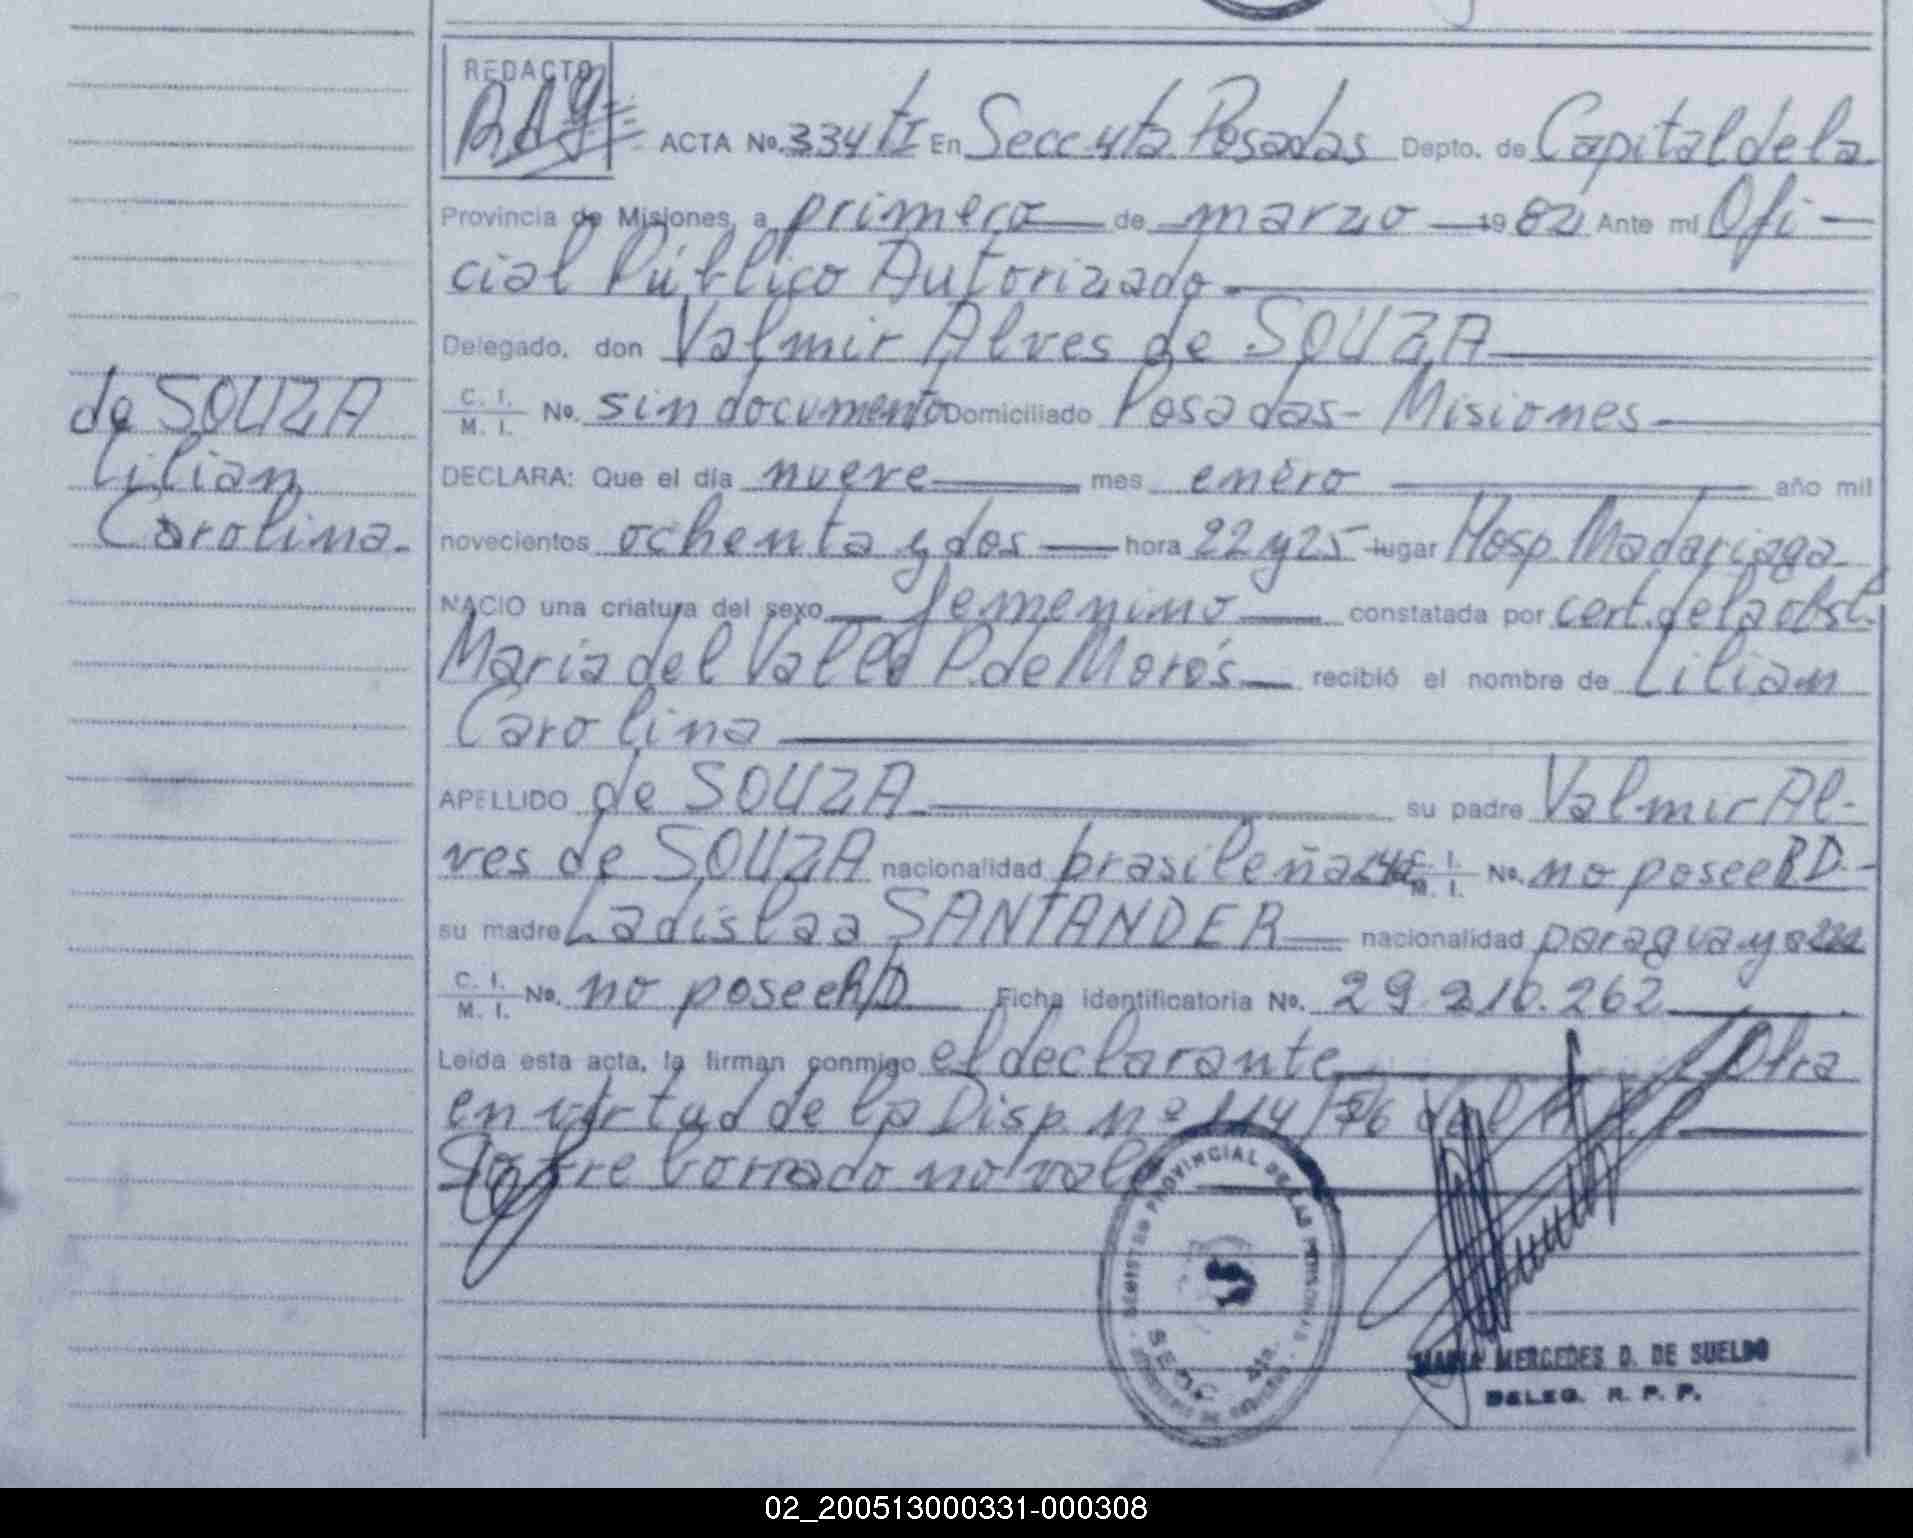 REDACTO
ACTA No. 334 tI En Secc 4ta Posadas Depto. de Capital de la
Provincia de Misiones, a primero de marzo 1982 Ante mi Ofi-
cial Público Autorizado
Delegado, don Valmir Alves de SOUZA
C. I.
M. I. No. sin documento Domiciliado Posadas - Misiones
de SOUZA
Lilian
Carolina.
DECLARA: Que el día nueve mes enero año mil
novecientos ochenta y dos hora 22 y 25 lugar Hosp Madariaga
NACIO una criatura del sexo femenino constatada por cert. de la obst.
Maria del Valle P. de Morés recibió el nombre de Lilian
Carolina
APELLIDO de SOUZA su padre Valmir Al-
ves de SOUZA nacionalidad brasileña 24a C. I.
M. I. No. no posee RD.-
su madre Ladislaa SANTANDER nacionalidad paraguaya 22a
C. I.
M. I. No. no posee R/D Ficha identificatoria No. 29.210.262
Leída esta acta, la firman conmigo el declarante Otra
en virtud de la Disp. nº 114/76 del
Sobre borrado no vale
REGISTRO PROVINCIAL DE LAS PERSONAS
SECC 4ta.
MARIA MERCEDES D. DE SUELDO
DELEG. R. P. P.
02_200513000331-000308